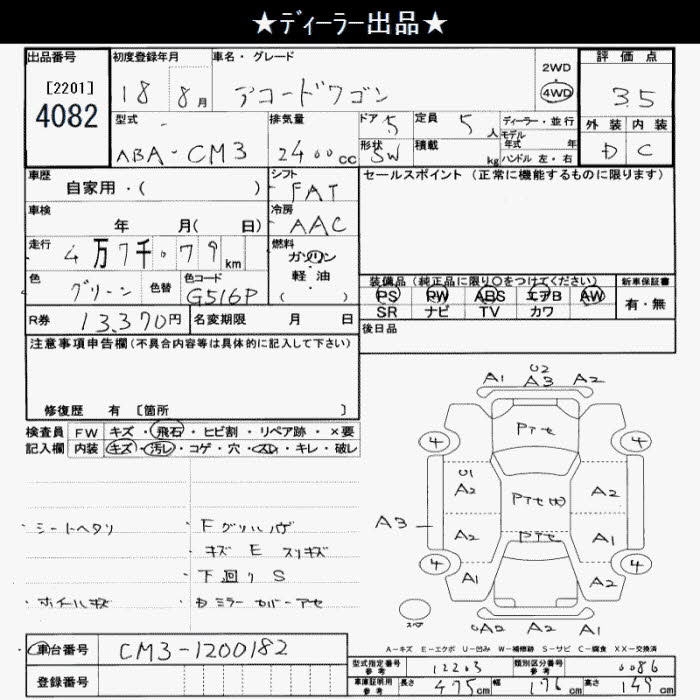 ★ディーラー出品★
出品番号
[2201]
4082
初度登録年月
18 8月
車名・グレード
アコードワゴン
2WD
4WD
評価点
3.5
外装 内装
D C
型式
ABA-CM3
排気量
2400cc
ドア 5
形状 SW
定員 5人
積載 kg
ディーラー・並行
モデル年式 年
ハンドル 左・右
車歴
自家用・( )
シフト
FAT
セールスポイント (正常に機能するものに限ります)
車検
年 月( 日)
冷房
AAC
走行
4万7千079km
燃料
ガソリン
軽油
( )
色
グリーン
色替
色コード
G516P
装備品 (純正品に限り○をつけてください)
PS PW ABS エアB AW
SR ナビ TV カワ
新車保証書
有・無
R券 13,370円
名変期限 月 日
後日品
注意事項申告欄 (不具合内容等は具体的に記入して下さい)
修復歴 有 [箇所 ]
検査員記入欄
FW キズ・飛石・ヒビ割・リペア跡・×要
内装 キズ・汚レ・コゲ・穴・スレ・キレ・破レ
・シートヘタリ
・Fグリル
キズ E スリキズ
・下廻りS
・ホイルキズ
ミラーカバーアセ
U2
A1 A3 A2
Pアセ
4 4
U1
A2 A2
Pアセ
A3
A2 A1
Pアセ
4 4
A1 A2
スペア
A2 A2 A1
A-キズ E-エクボ U-凹み W-補修跡 S-サビ C-腐食 XX-交換済
車台番号 CM3-1200182
登録番号
型式指定番号 参考 12203
類別区分番号 参考 0086
車庫証明用 参考 長さ 475cm 幅 176cm 高さ 149cm